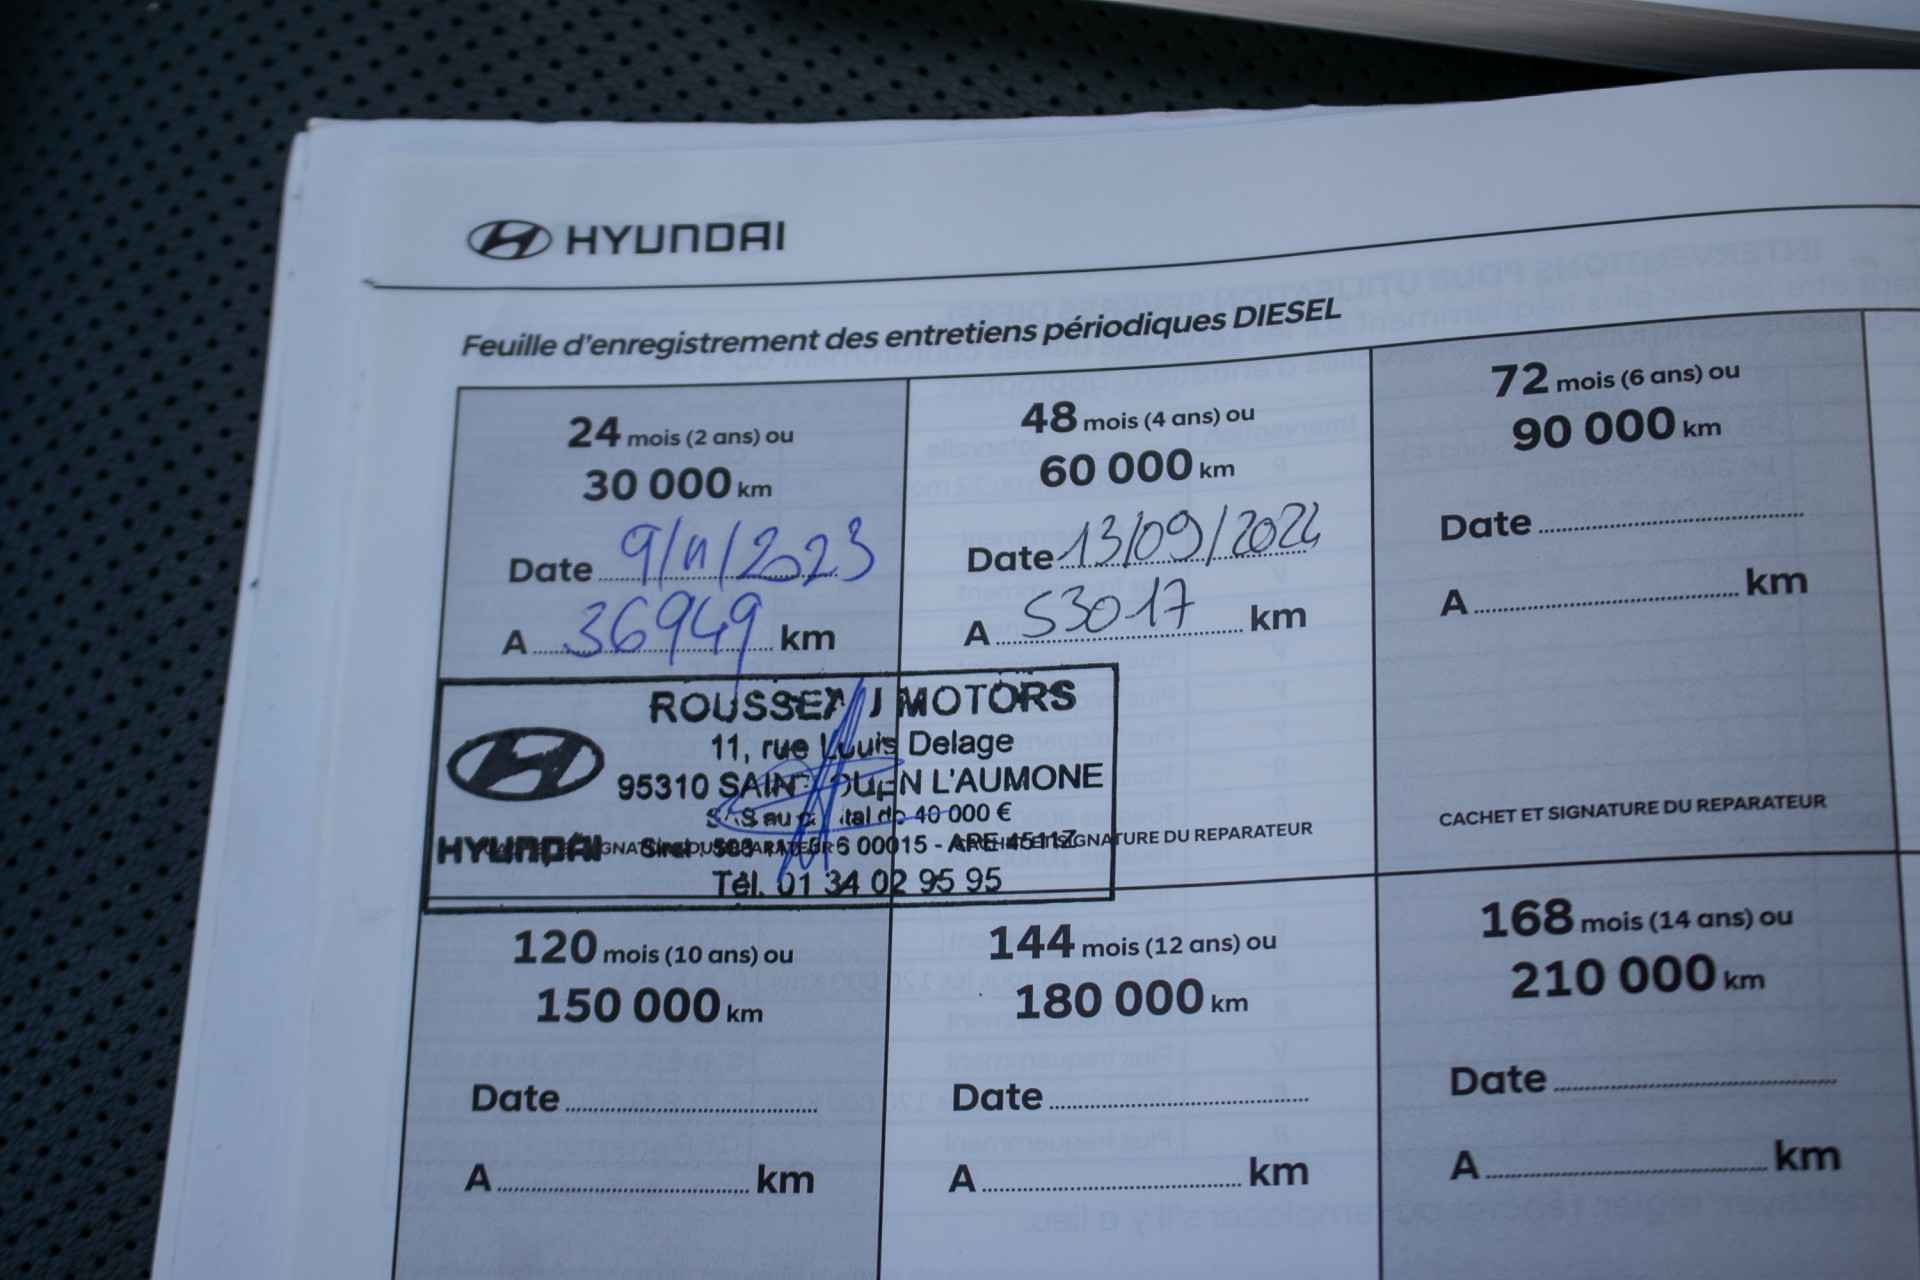 HYUNDAI
Feuille d'enregistrement des entretiens périodiques DIESEL
24 mois (2 ans) ou
30 000 km
Date 9/11/2023
A 36949 km
ROUSSEAU MOTORS
11, rue Louis Delage
95310 SAINT OUEN L'AUMONE
SAS au capital de 40 000 €
HYUNDAI
00015 - APE 4511Z
Tél. 01 34 02 95 95
48 mois (4 ans) ou
60 000 km
Date 13/09/2024
A 53017 km
SIGNATURE DU REPARATEUR
72 mois (6 ans) ou
90 000 km
Date
A km
CACHET ET SIGNATURE DU REPARATEUR
120 mois (10 ans) ou
150 000 km
Date
A km
144 mois (12 ans) ou
180 000 km
Date
A km
168 mois (14 ans) ou
210 000 km
Date
A km